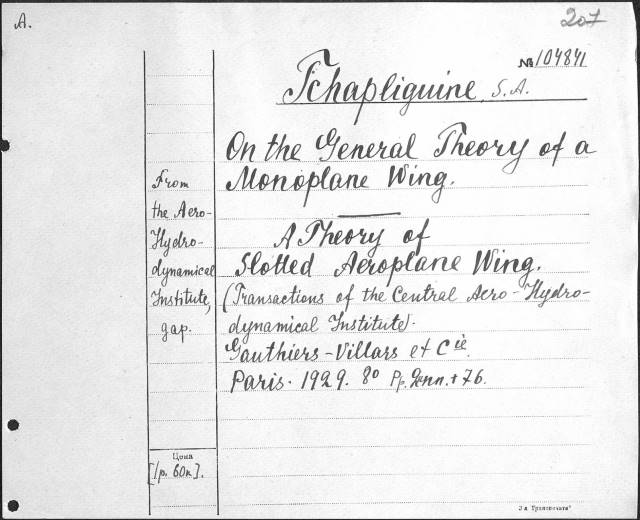 A.
207
№ 104841
Tchapliguine, S.A.
On the General Theory of a
Monoplane Wing.
A Theory of
Slotted Aeroplane Wing.
(Transactions of the Central Aero-Hydro-
dynamical Institute).
Gauthiers-Villars et Cie.
Paris. 1929. 8° Pp. + 76.
From
the Aero-
Hydro-
dynamical
Institute,
gap.
Цена
[1р. 60к].